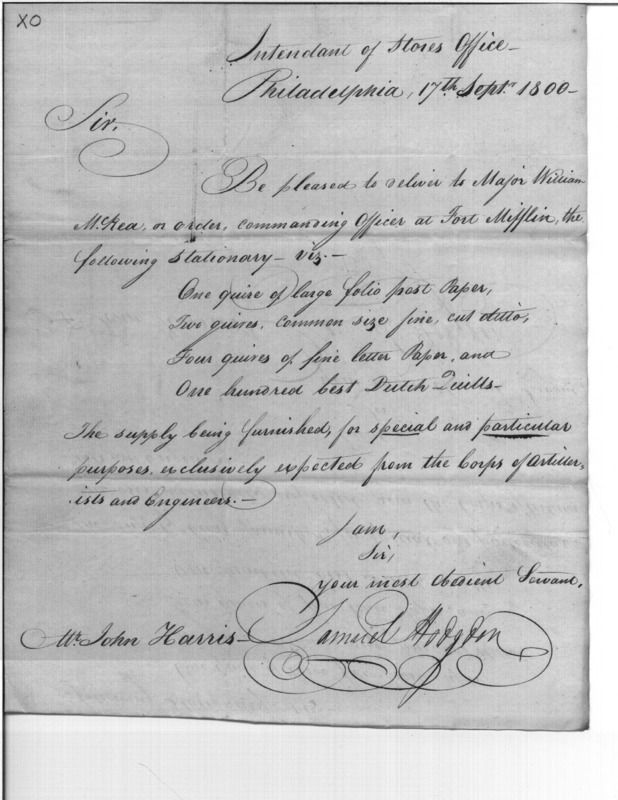 XO
Intendant of Stores Office—
Philadelphia, 17th Septr 1800—
Sir,
Be pleased to deliver to Major William
McRea, or order, commanding Officer at Fort Mifflin, the
following Stationary— viz.—
One quire of large folio post Paper,
Two quires, common size fine, cut ditto,
Four quires of fine letter Paper, and
One hundred best Dutch Quills—
The supply being furnished, for special and particular
purposes, exclusively expected from the Corps of Artiller-
-ists and Engineers.—
I am,
Sir,
your most obedient Servant,
Mr John Harris—
Samuel Hodgdon